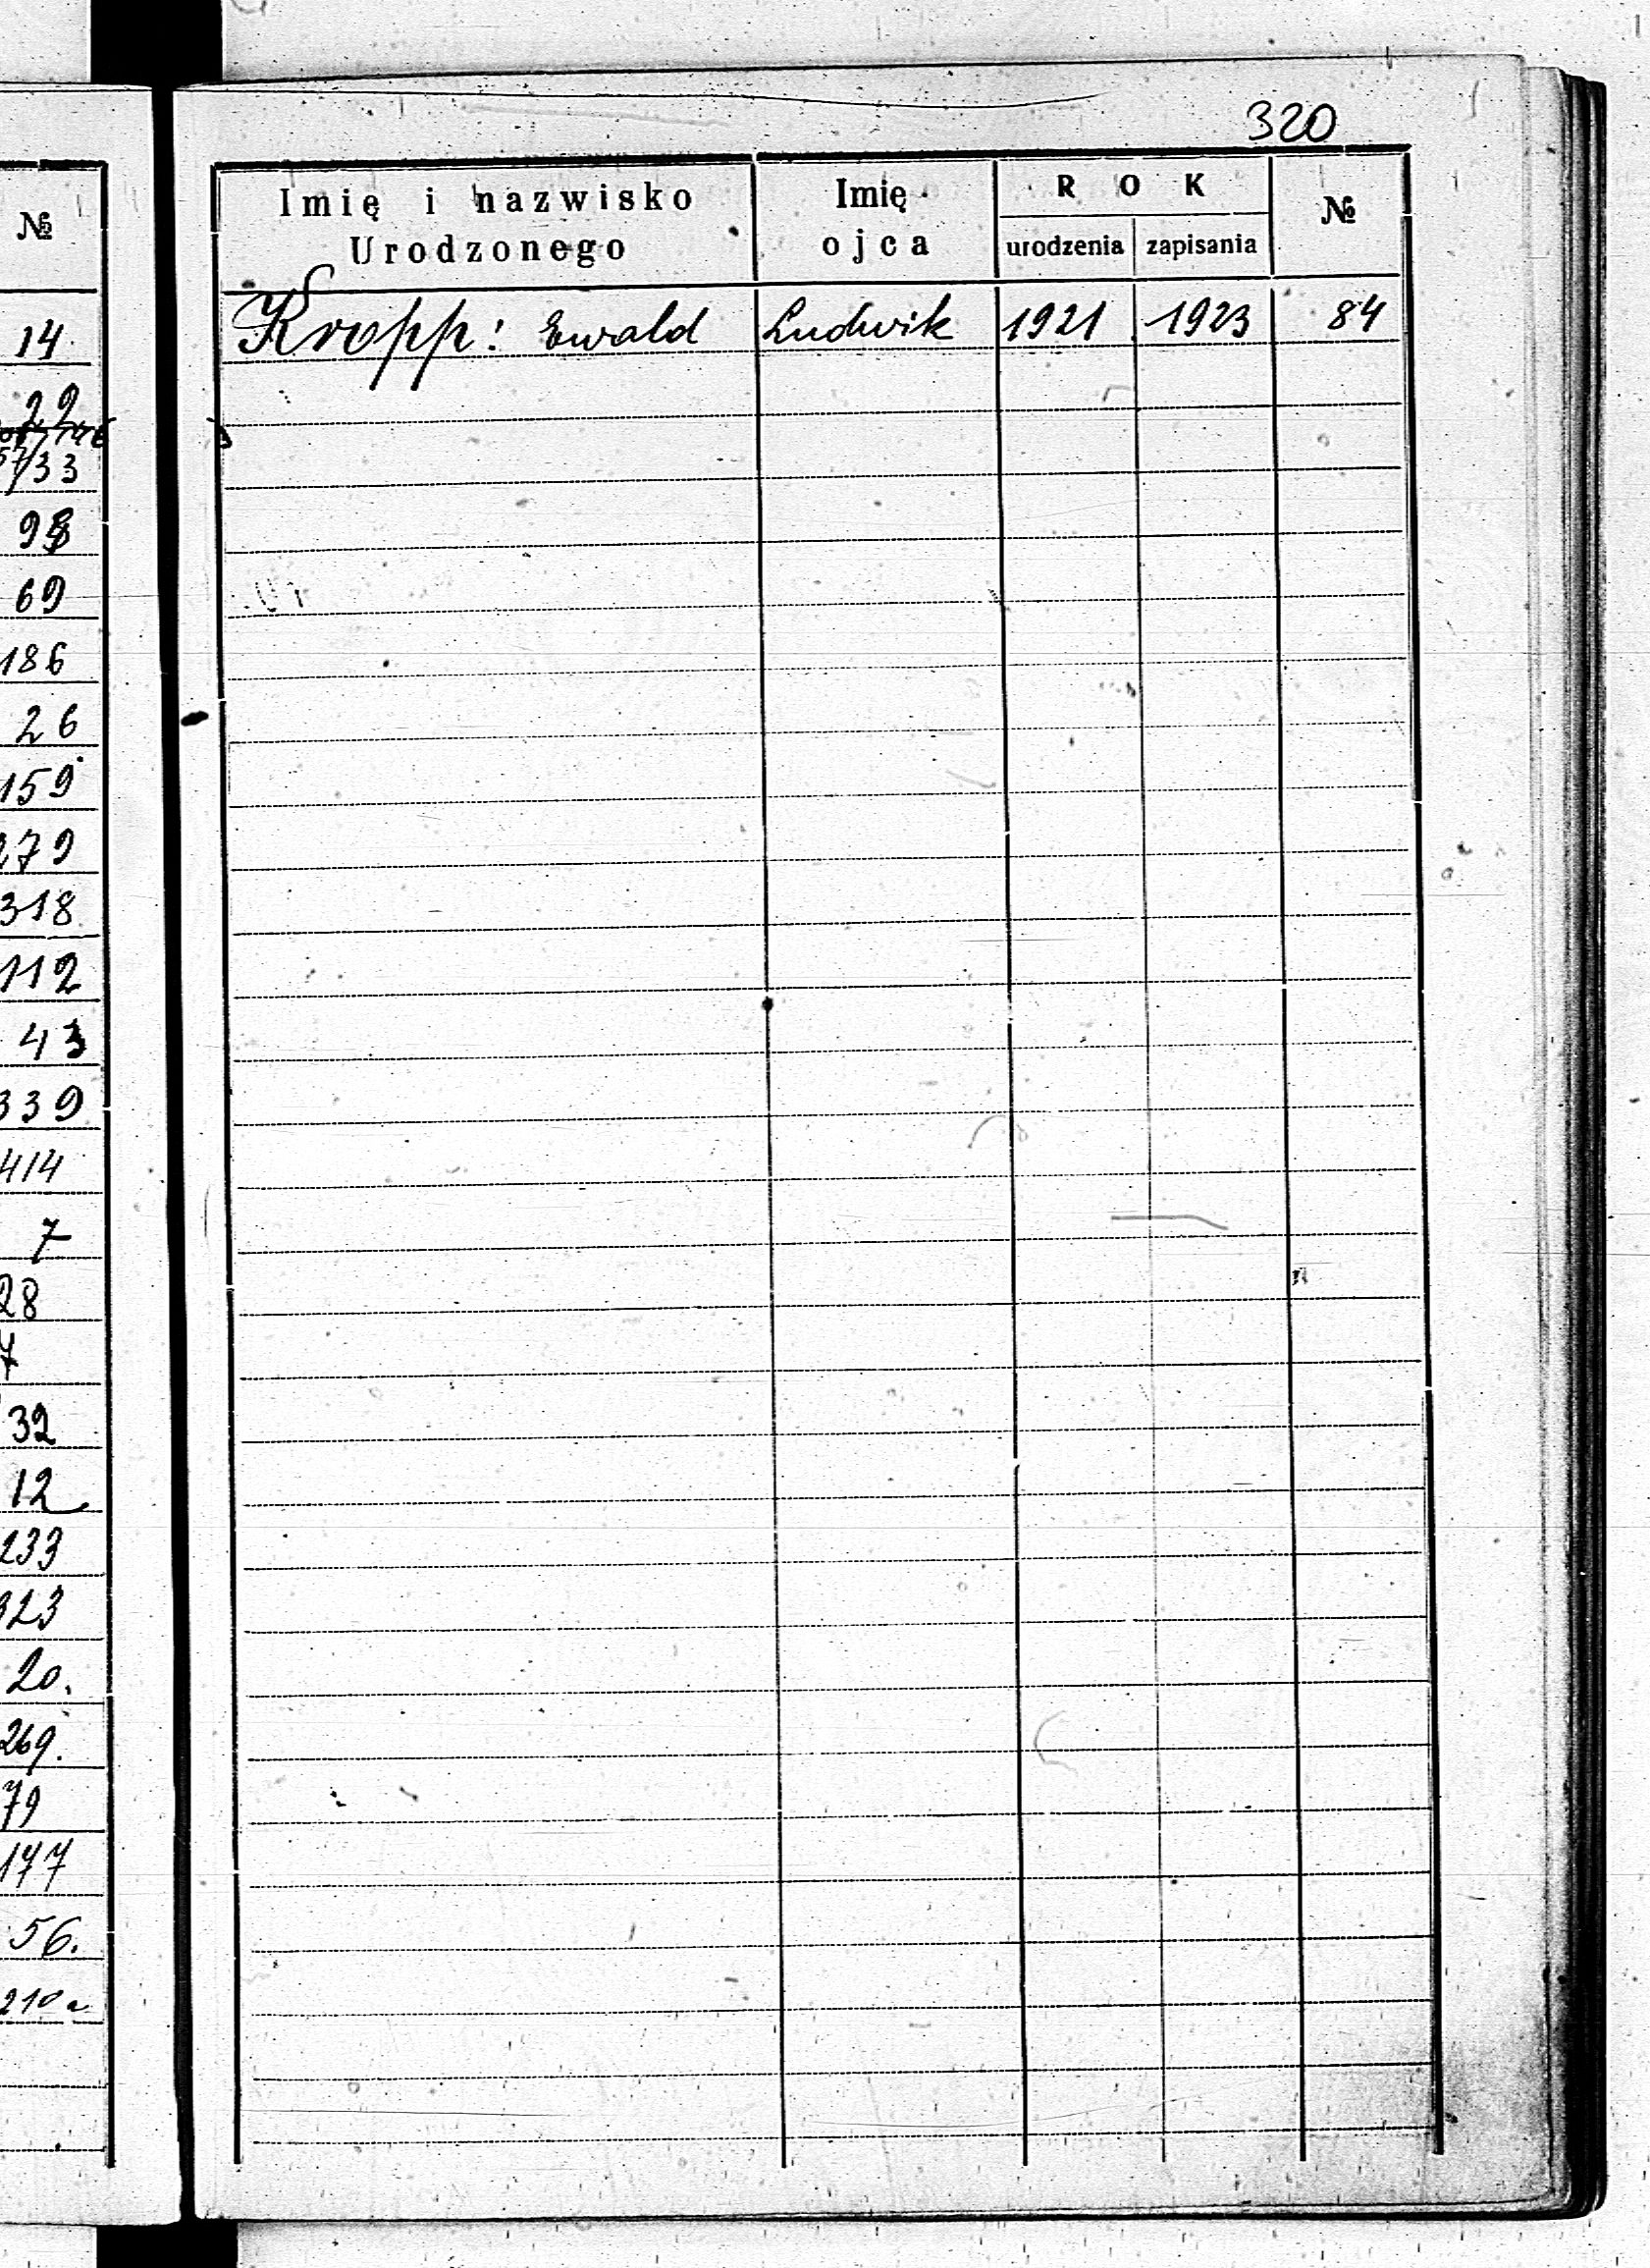 №
14
22
33
98
69
186
26
159
279
318
112
43
339
414
7
28
7
32
12
233
323
20.
269.
79
177
56.
210a
320
Imię i nazwisko Urodzonego
Imię ojca
ROK
urodzenia
zapisania
№
Kropp: Ewald Ludwik 1921 1923 84